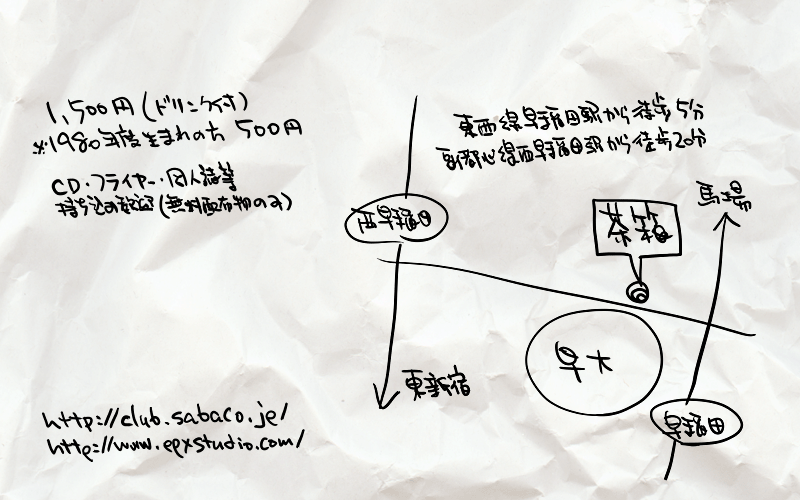 1,500円(ドリンク付)
※1980年度生まれの方 500円
CD・フライヤー・同人誌等
持ち込み歓迎(無料配布物のみ)
東西線早稲田駅から徒歩5分
副都心線西早稲田駅から徒歩20分
馬場
西早稲田
茶箱
早大
東新宿
早稲田
http://club.sabaco.jp/
http://www.epxstudio.com/